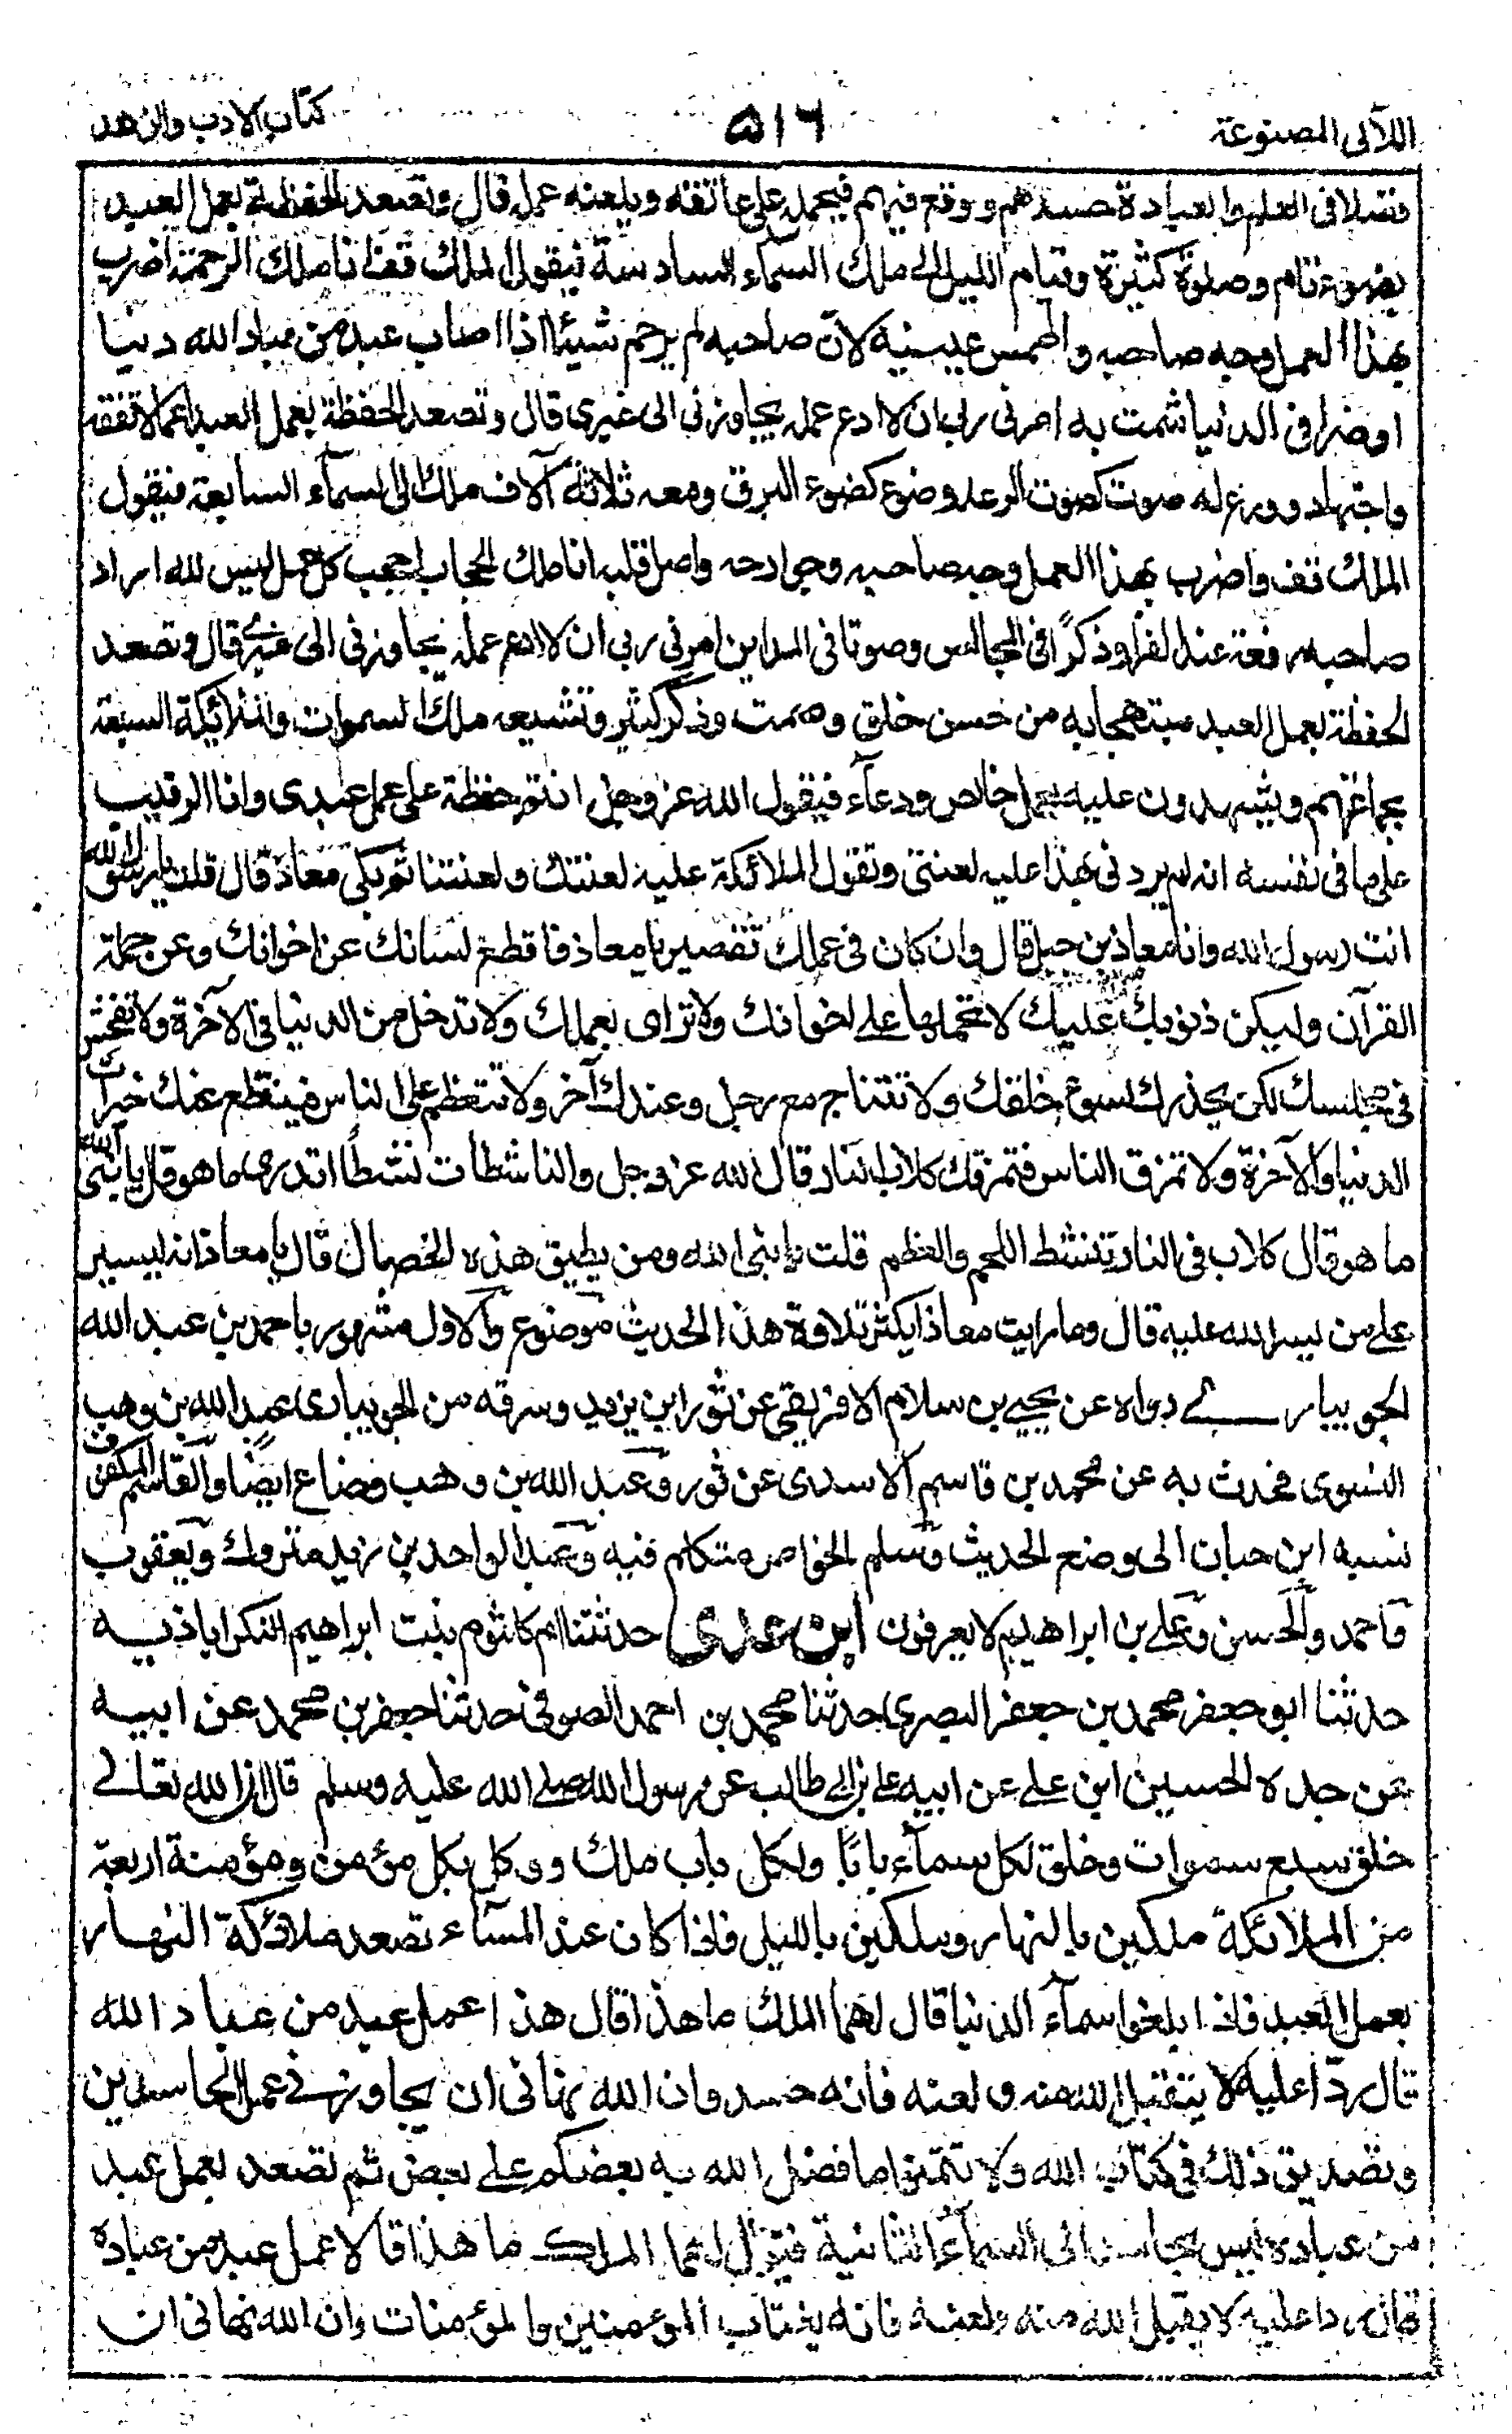 اللآلى المصنوعة ٥١٦ كتاب الادب والزهد
فضلا فى العلم والعبادة حسدهم ووقع فيهم فيحمله على عاتقه ويلعنه عمله قال وتصعد الحفظة بعمل العبد
بوضوء تام وصلوة كثيرة وقيام الليل الى ملك السمآء السادسة فيقول الملك قف انا ملك الرحمة اضرب
بهذا العمل وجه صاحبه واطمس عينيه لان صاحبه لم يرحم شيئا اذا اصاب عبد من عباد الله دنيا
او ضرا فى الدنيا شمت به امرنى ربى ان لا ادع عمله يجاوزنى الى غيرى قال وتصعد الحفظة بعمل العبد اعمالا تفقه
واجتهاد وورع له صوت كصوت الرعد وضوء كضوء البرق ومعه ثلاثة آلاف ملك الى السمآء السابعة فيقول
الملك قف واضرب بهذا العمل وجه صاحبه وجوارحه واصل قلبه انا ملك الحجاب احجب كل عمل ليس لله اراد
صاحبه رفعة عند القراء وذكرًا فى المجالس وصوتا فى المداين امرنى ربى ان لا ادع عمله يجاوزنى الى غيرى قال وتصعد
الحفظة بعمل العبد مبتهجا به من حسن خلق وصمت وذكر كثير وتشيعه ملك السموات والملائكة السبعة
بجماعتهم ويشهدون عليه بعمل خالص ودعآء فيقول الله عز وجل انتم حفظة على عمل عبدى وانا الرقيب
على ما فى نفسه انه لم يردنى بهذا عليه لعنتى وتقول الملائكة عليه لعنتك ولعنتنا ثم بكى معاذ قال قلت يا رسول الله
انت رسول الله وانا معاذ بن جبل قال وان كان فى عملك تقصير يا معاذ فاقطع لسانك عن اخوانك وعن حملة
القرآن وليكن ذنوبك عليك لا تحملها على اخوانك ولا ترائى بعملك ولا تدخل من الدنيا فى الآخرة ولا تفحش
فى مجلسك لكى يحذرك لسوء خلقك ولا تتناج مع رجل وعندك آخر ولا تتعظم على الناس فينقطع عنك خيرات
الدنيا والآخرة ولا تمزق الناس فتمزقك كلاب النار قال الله عز وجل والناشطات نشطًا اتدرى ما هو قال يا نبى الله
ما هو قال كلاب فى النار تنشط اللحم والعظم قلت يا نبى الله ومن يطيق هذه الخصال قال يا معاذ انه ليسير
على من يسر الله عليه قال وما رايت معاذا يكثر تلاوة هذا الحديث موضوع والاول مشهور باحمد بن عبد الله
الجويبارى رواه عن يحيى بن سلام الافريقى عن ثور ابن يزيد وسرقه من الجويبارى عبد الله بن وهب
النسوى فحدث به عن محمد بن قاسم الاسدى عن ثور وعبد الله بن وهب وضاع ايضا والقاسم المكفوف
نسبه ابن حبان الى وضع الحديث وسلم الخواص متكلم فيه وعبد الواحد بن زيد متروك ويعقوب
فاحمد والحسن وعلى بن ابراهيم لا يعرفون ابن عدى حدثتنا ام كلثوم بنت ابراهيم البكراباذيه
حدثنا ابو جعفر محمد بن جعفر البصرى حدثنا محمد بن احمد الصوفى حدثنا جعفر بن محمد عن ابيه
عن جده الحسين ابن على عن ابيه على بن ابى طالب عن رسول الله صلى الله عليه وسلم قال ان الله تعالى
خلق سبع سموات وخلق لكل سمآء بابًا ولكل باب ملك ووكل بكل مؤمن ومؤمنة اربعة
من الملائكة ملكين بالنهار وملكين بالليل فاذا كان عند المسآء تصعد ملائكة النهار
بعمل العبد فاذا بلغوا سمآء الدنيا قال لهما الملك ما هذا قال هذا عمل عبد من عباد الله
قال ردا عليه لا يتقبل الله منه ولعنه فانه حسد وان الله نهانى ان يجاوزنى عمل الحاسدين
وتصديق ذلك فى كتاب الله ولا تتمنوا ما فضل الله به بعضكم على بعض ثم تصعد بعمل عبد
من عباده ليس بحاسد الى السمآء الثانية فيقول لهما الملك ما هذا قالا عمل عبد من عباده
قال ردا عليه لا يقبل الله منه ولعنه فانه يغتاب المؤمنين والمؤمنات وان الله نهانى ان